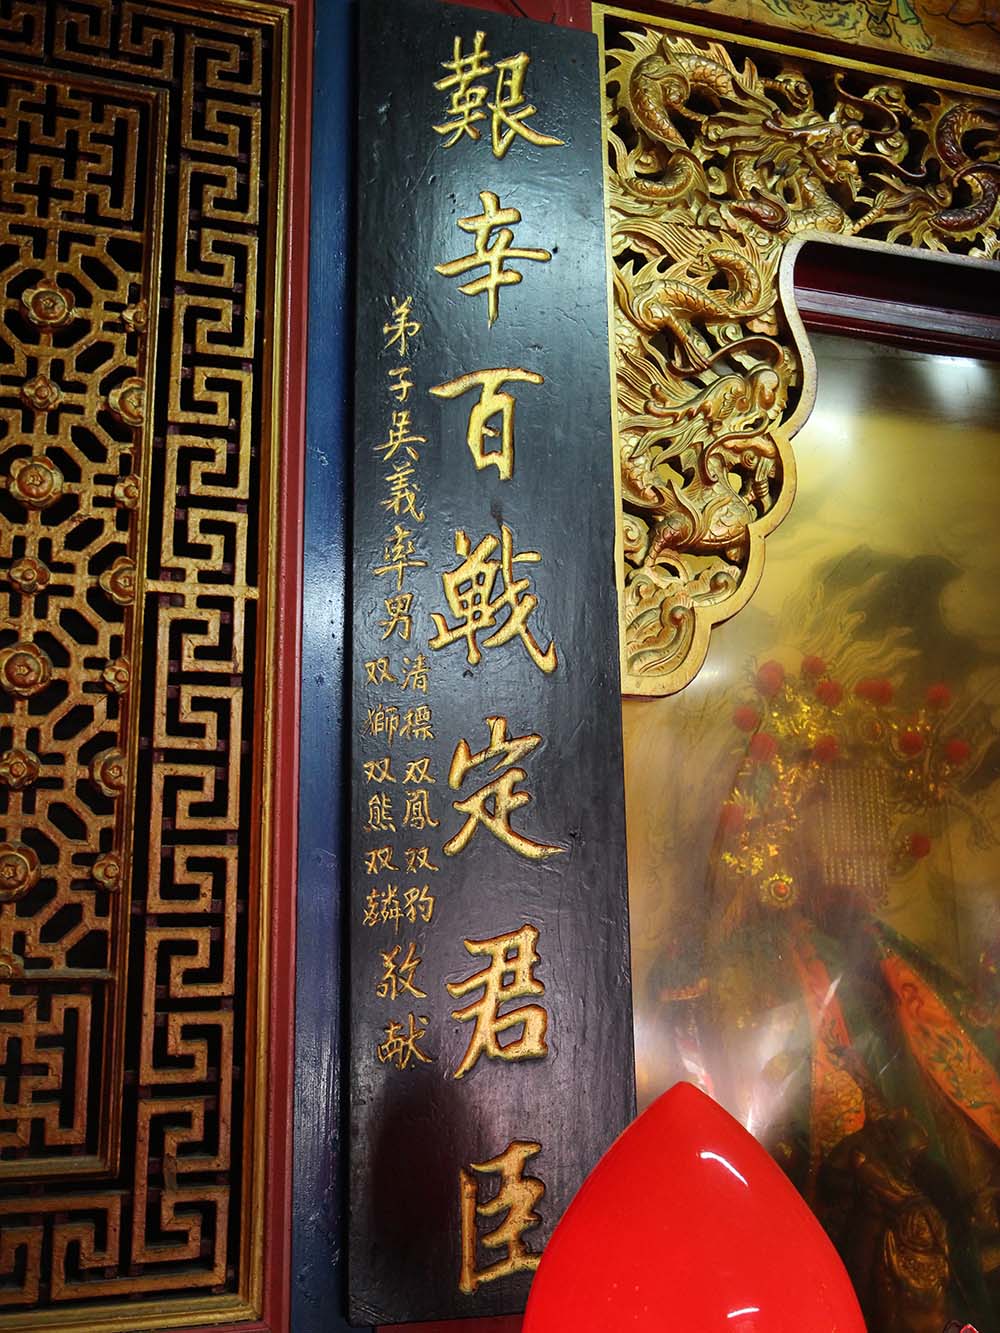 艱辛百戰定君臣
弟子吳義率男清標双鳳双豹双獅双熊双麟敬献